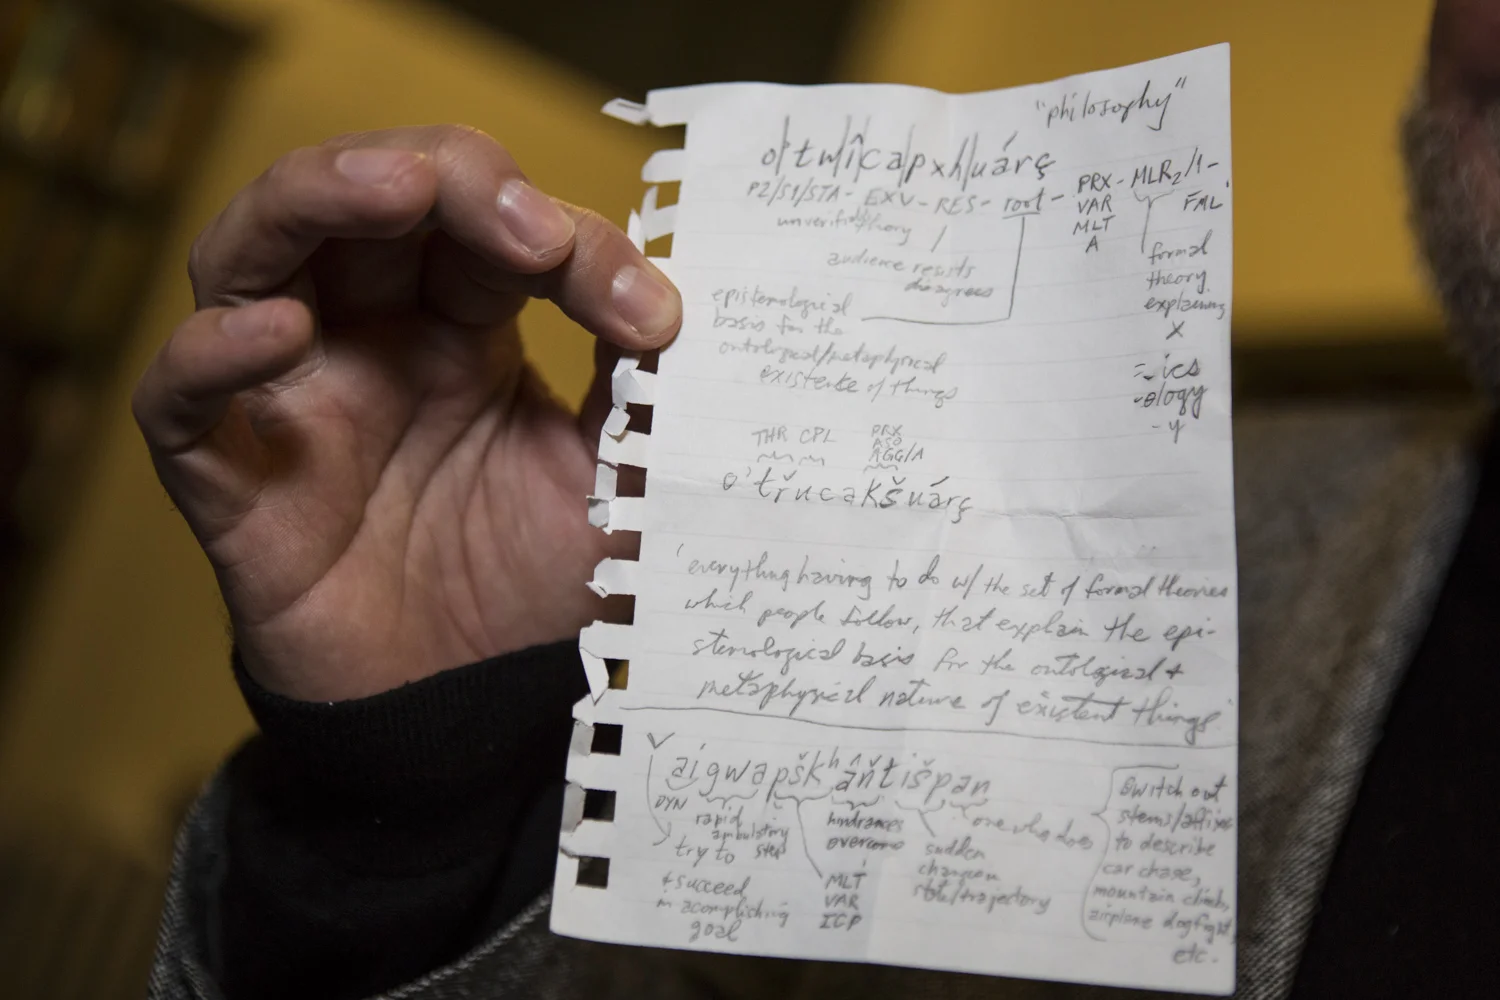 "philosophy"
o'twîcapxhuárç
P2/S1/STA- EXV - RES - root - PRX - MLR2/1-
VAR FML
MLT
A
unverif theory
audience resists
disagrees
formal
theory
explaining
X
= -ics
-ology
-y
epistemological
basis for the
ontological/metaphysical
existence of things
THR CPL PRX
ASO
AGG/A
o'třucakšuárç
'everything having to do w/ the set of formal theories
which people follow, that explain the epi-
stemological basis for the ontological +
metaphysical nature of existent things'
aigwapškʰâňtišpan
DYN
rapid
ambulatory
step
try to
+ succeed
in acomplishing
goal
MLT
VAR
ICP
hindrances
overcome
sudden
change in
state/trajectory
one who does
switch out
stems/affixes
to describe
car chase,
mountain climb,
airplane dogfight,
etc.